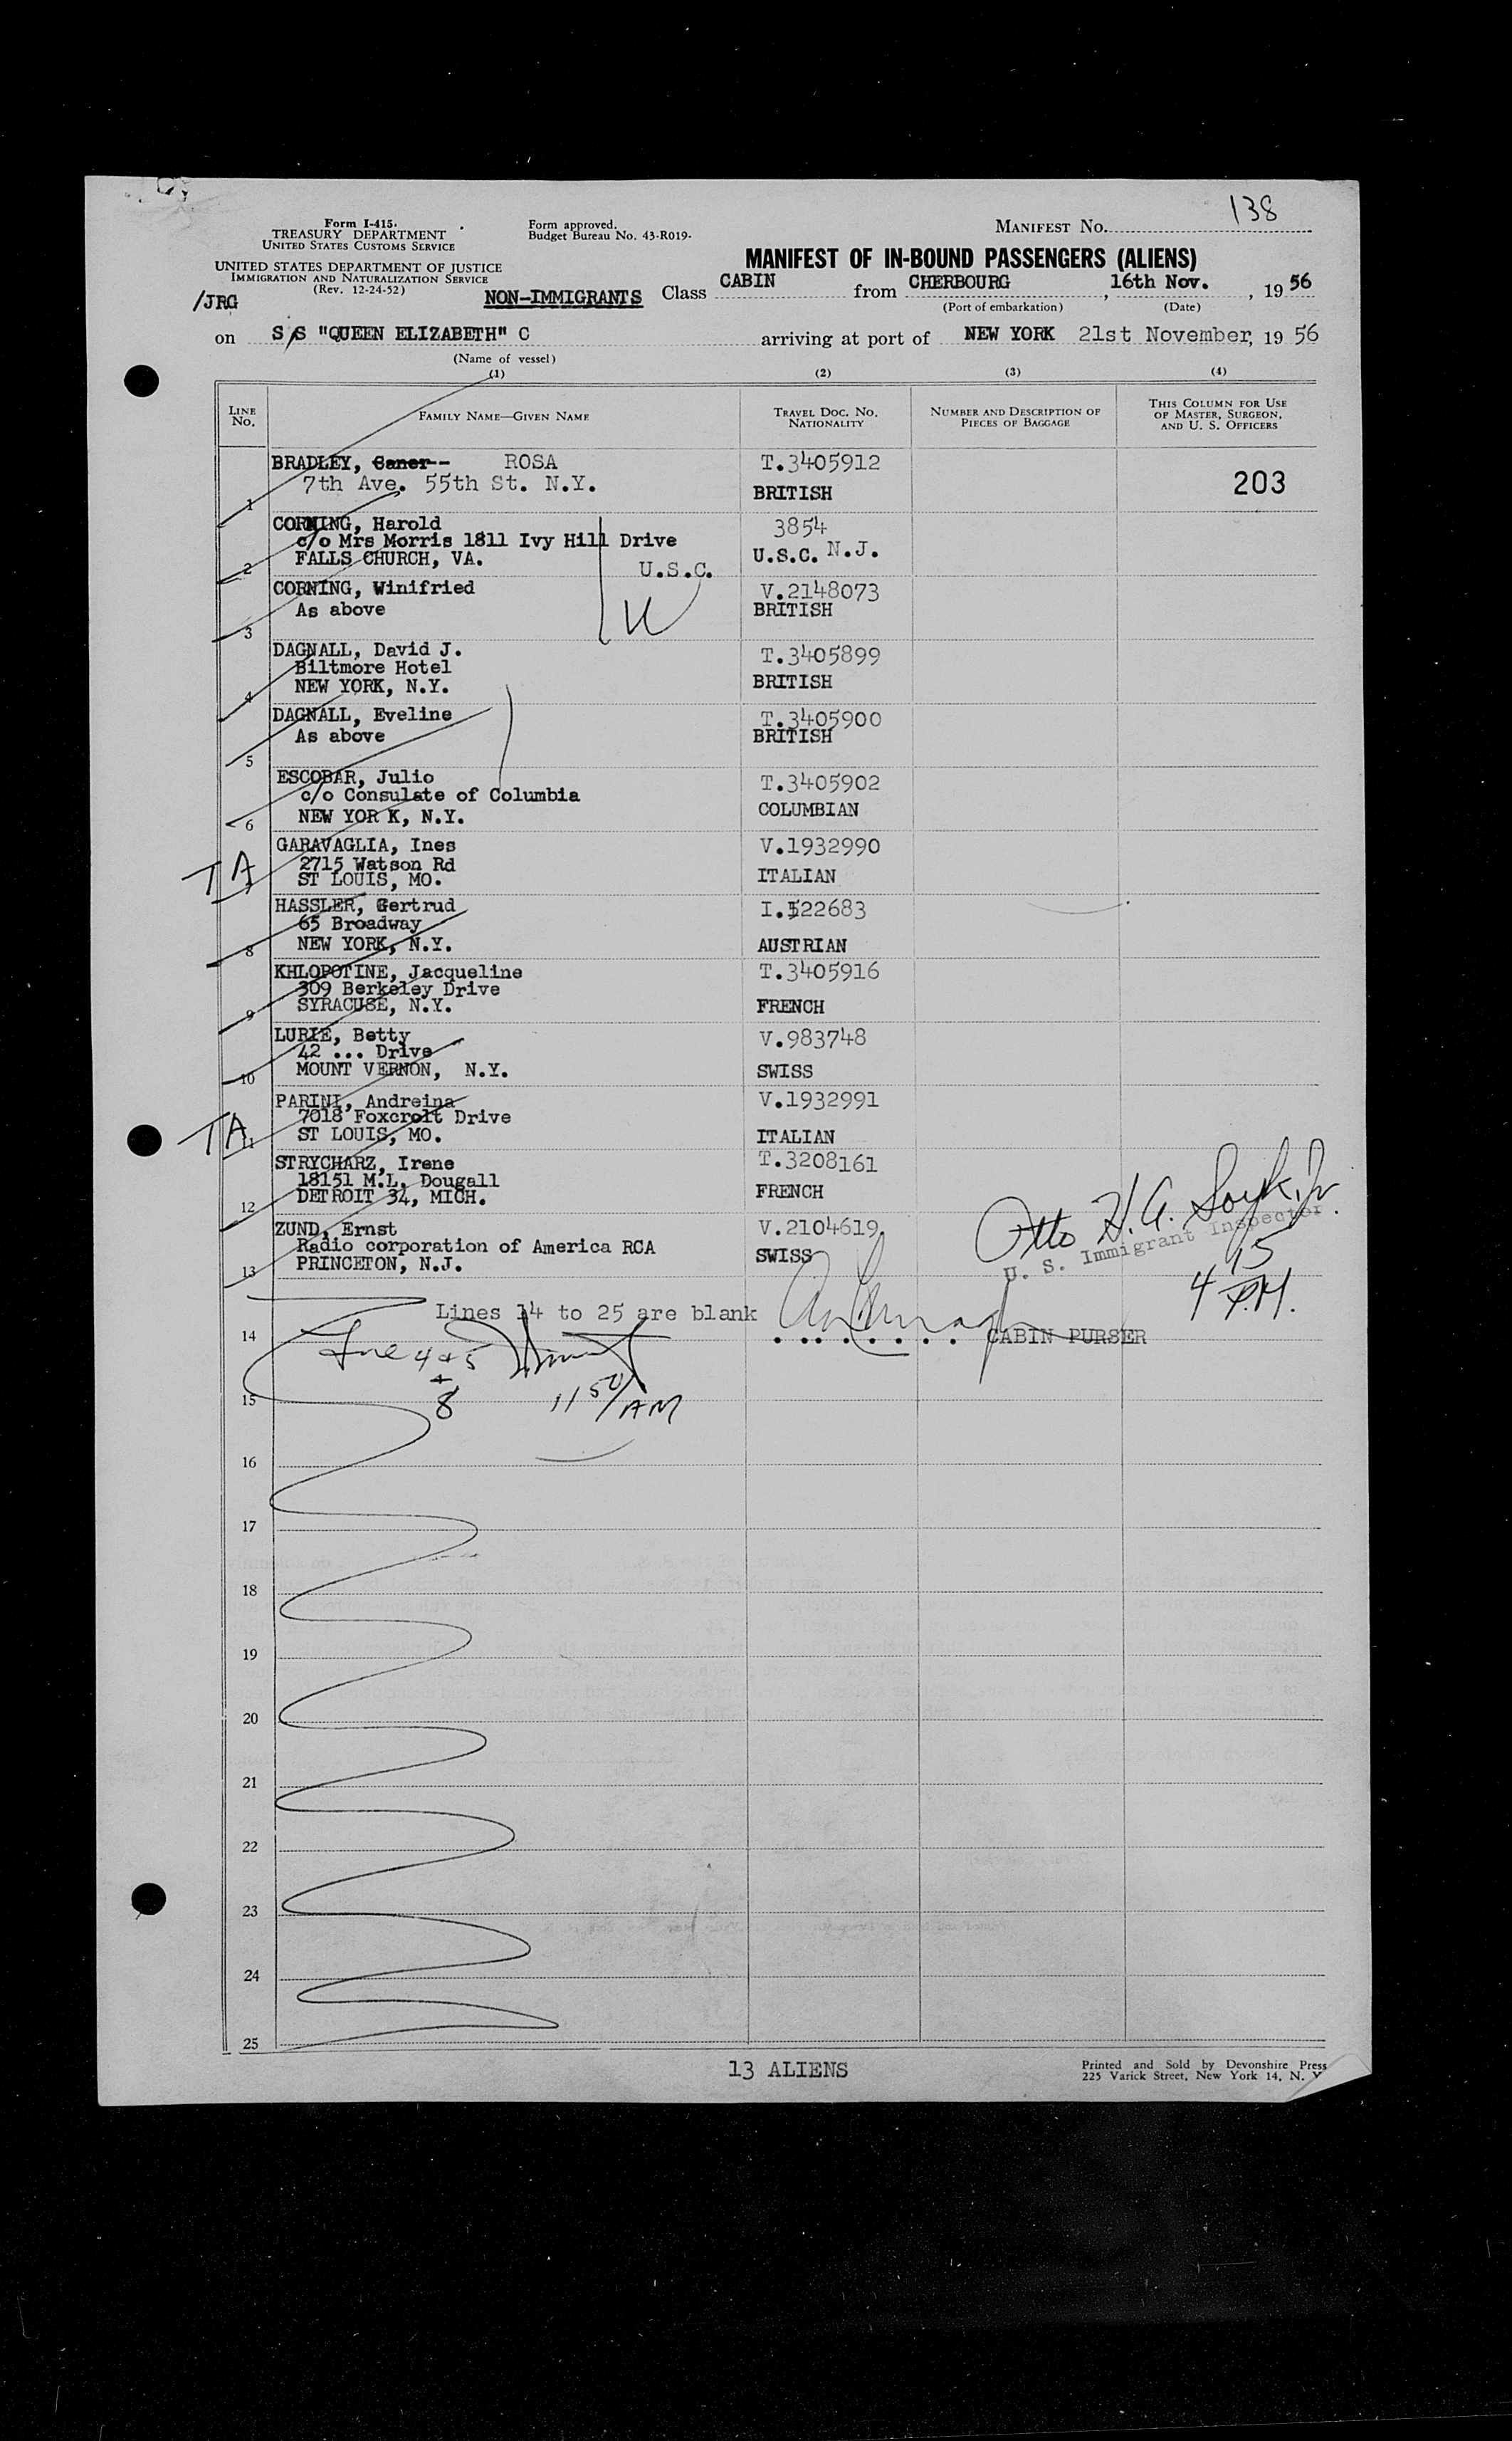 138
Form I-415.
TREASURY DEPARTMENT
UNITED STATES CUSTOMS SERVICE
Form approved.
Budget Bureau No. 43-R019-
MANIFEST NO.
UNITED STATES DEPARTMENT OF JUSTICE
IMMIGRATION AND NATURALIZATION SERVICE
(Rev. 12-24-52)
MANIFEST OF IN-BOUND PASSENGERS (ALIENS)
/JRG
NON-IMMIGRANTS Class CABIN from CHERBOURG , 16th Nov. , 19 56
(Port of embarkation) (Date)
on S/S "QUEEN ELIZABETH" C arriving at port of NEW YORK 21st November, 19 56
(Name of vessel)
(1) (2) (3) (4)
LINE No. FAMILY NAME—GIVEN NAME TRAVEL DOC. NO. NATIONALITY NUMBER AND DESCRIPTION OF PIECES OF BAGGAGE THIS COLUMN FOR USE OF MASTER, SURGEON, AND U. S. OFFICERS
BRADLEY, Saner-- ROSA T.3405912
7th Ave. 55th St. N.Y. BRITISH 203
1
CORNING, Harold 3854
c/o Mrs Morris 1811 Ivy Hill Drive
FALLS CHURCH, VA. U.S.C. N.J.
2 U.S.C.
CORNING, Winifried V.2148073
As above BRITISH
3
DAGNALL, David J. T.3405899
Biltmore Hotel
NEW YORK, N.Y. BRITISH
4
DAGNALL, Eveline T.3405900
As above BRITISH
5
ESCOBAR, Julio T.3405902
c/o Consulate of Columbia COLUMBIAN
NEW YOR K, N.Y.
6
GARAVAGLIA, Ines V.1932990
2715 Watson Rd
TA ST LOUIS, MO. ITALIAN
7
HASSLER, Gertrud I.522683
65 Broadway
NEW YORK, N.Y. AUSTRIAN
8
KHLOPOTINE, Jacqueline T.3405916
309 Berkeley Drive
SYRACUSE, N.Y. FRENCH
9
LURIE, Betty V.983748
42 ... Drive
MOUNT VERNON, N.Y. SWISS
10
PARINI, Andreina V.1932991
7018 Foxcroft Drive
TA ST LOUIS, MO. ITALIAN
11
STRYCHARZ, Irene T.3208161
18151 M.L. Dougall
DETROIT 34, MICH. FRENCH
12
ZUND, Ernst V.2104619
Radio corporation of America RCA SWISS
PRINCETON, N.J.
13
Otto H.A.
U. S. Immigrant Inspector
4 15 P.M.
Lines 14 to 25 are blank
14 CABIN PURSER
4 & 5
+
8 11 50/AM
15
16
17
18
19
20
21
22
23
24
25
13 ALIENS
Printed and Sold by Devonshire Press
225 Varick Street, New York 14, N. Y.